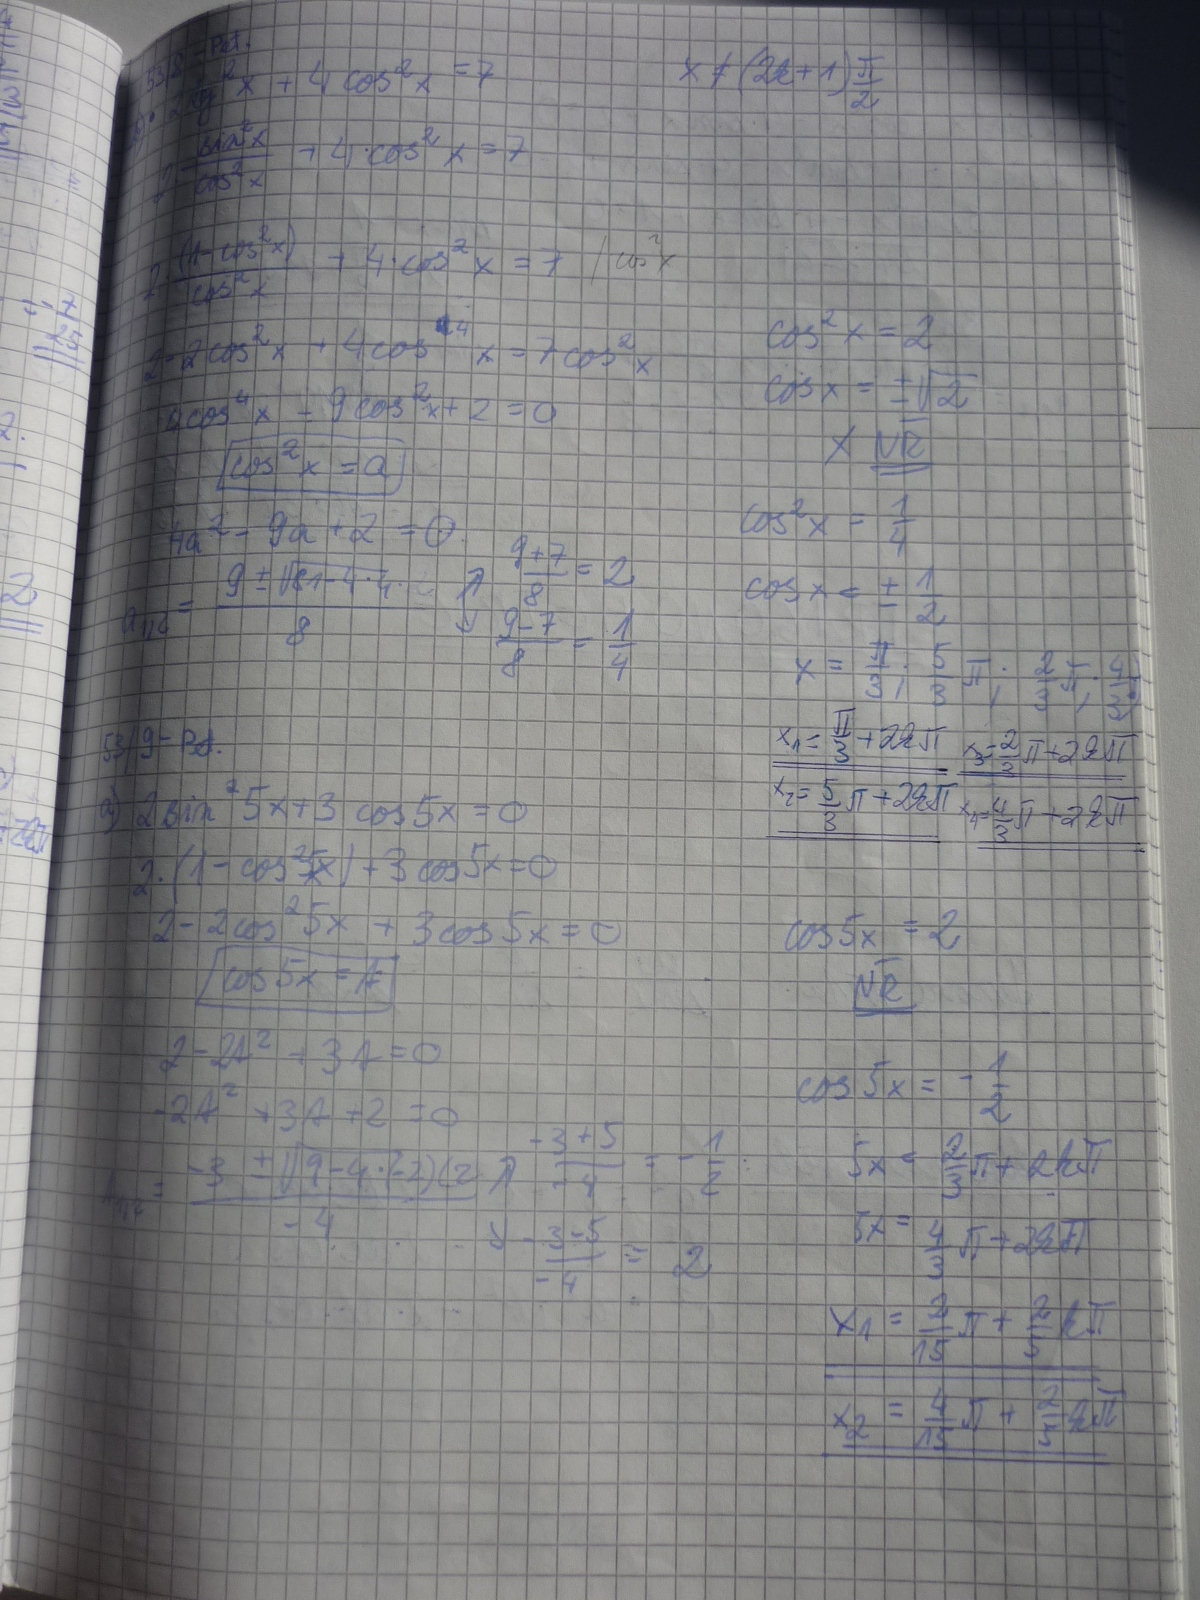 53/8 - Pet.
b) 2 tg²x + 4 cos²x = 7
x ≠ (2k+1) π/2
2 sin²x/cos²x + 4·cos²x = 7
2 (1-cos²x)/cos²x + 4·cos²x = 7 /cos²x
2-2cos²x + 4cos⁴x = 7cos²x
4cos⁴x - 9cos²x + 2 = 0
cos²x = a
4a² - 9a + 2 = 0
9+7/8 = 2
9-7/8 = 1/4
cos²x = 2
cosx = ±√2
X NR
cos²x = 1/4
cosx = ± 1/2
x = π/3; 5/3 π; 2/3 π; 4/3
x₁ = π/3 + 2kπ x₃ = 2/3 π + 2kπ
x₂ = 5/3 π + 2kπ x₄ = 4/3 π + 2kπ
53/9 - Pet.
a) 2 sin² 5x + 3 cos 5x = 0
2·(1 - cos² 5x) + 3 cos 5x = 0
2 - 2cos² 5x + 3 cos 5x = 0
cos 5x = t
2 - 2t² + 3t = 0
-2t² + 3t + 2 = 0
t₁,₂ = -3 ± √9-4·(-2)(2 / -4
-3+5/-4 = - 1/2
-3-5/-4 = 2
cos 5x = 2
NR
cos 5x = - 1/2
5x = 2/3 π + 2kπ
5x = 4/3 π + 2kπ
x₁ = 2/15 π + 2/5 kπ
x₂ = 4/15 π + 2/5 kπ